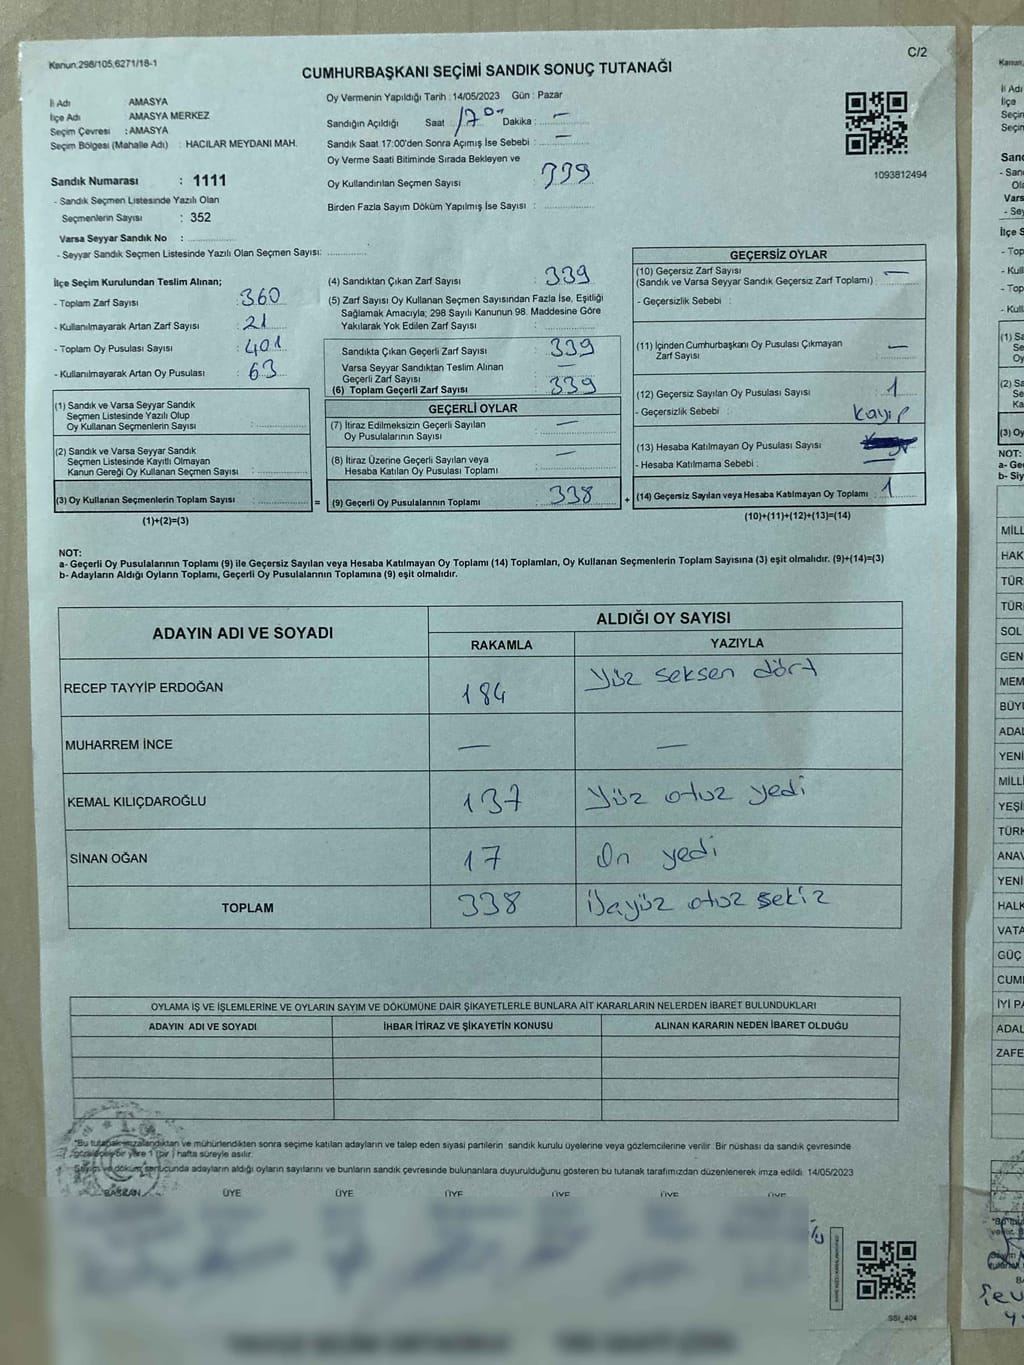 Kanun:298/105,6271/18-1
C/2
CUMHURBAŞKANI SEÇİMİ SANDIK SONUÇ TUTANAĞI
İl Adı AMASYA
İlçe Adı AMASYA MERKEZ
Seçim Çevresi : AMASYA
Seçim Bölgesi (Mahalle Adı) : HACILAR MEYDANI MAH.
Sandık Numarası : 1111
- Sandık Seçmen Listesinde Yazılı Olan
Seçmenlerin Sayısı : 352
Varsa Seyyar Sandık No :
- Seyyar Sandık Seçmen Listesinde Yazılı Olan Seçmen Sayısı:
Oy Vermenin Yapıldığı Tarih : 14/05/2023 Gün : Pazar
Sandığın Açıldığı Saat 17 00 Dakika : —
Sandık Saat 17:00'den Sonra Açımış İse Sebebi : —
Oy Verme Saati Bitiminde Sırada Bekleyen ve
Oy Kullandırılan Seçmen Sayısı 339
Birden Fazla Sayım Döküm Yapılmış İse Sayısı :
1093812494
İlçe Seçim Kurulundan Teslim Alınan;
- Toplam Zarf Sayısı : 360
- Kullanılmayarak Artan Zarf Sayısı : 21
- Toplam Oy Pusulası Sayısı : 401
- Kullanılmayarak Artan Oy Pusulası : 63
(1) Sandık ve Varsa Seyyar Sandık
Seçmen Listesinde Yazılı Olup
Oy Kullanan Seçmenlerin Sayısı :
(2) Sandık ve Varsa Seyyar Sandık
Seçmen Listesinde Kayıtlı Olmayan
Kanun Gereği Oy Kullanan Seçmen Sayısı :
(3) Oy Kullanan Seçmenlerin Toplam Sayısı : =
(1)+(2)=(3)
(4) Sandıktan Çıkan Zarf Sayısı : 339
(5) Zarf Sayısı Oy Kullanan Seçmen Sayısından Fazla İse, Eşitliği
Sağlamak Amacıyla; 298 Sayılı Kanunun 98. Maddesine Göre
Yakılarak Yok Edilen Zarf Sayısı :
Sandıkta Çıkan Geçerli Zarf Sayısı : 339
Varsa Seyyar Sandıktan Teslim Alınan
Geçerli Zarf Sayısı : —
(6) Toplam Geçerli Zarf Sayısı : 339
GEÇERLİ OYLAR
(7) İtiraz Edilmeksizin Geçerli Sayılan
Oy Pusulalarının Sayısı : —
(8) İtiraz Üzerine Geçerli Sayılan veya
Hesaba Katılan Oy Pusulası Toplamı : —
(9) Geçerli Oy Pusulalarının Toplamı : 338 +
GEÇERSİZ OYLAR
(10) Geçersiz Zarf Sayısı
(Sandık ve Varsa Seyyar Sandık Geçersiz Zarf Toplamı) : —
- Geçersizlik Sebebi :
(11) İçinden Cumhurbaşkanı Oy Pusulası Çıkmayan
Zarf Sayısı : —
(12) Geçersiz Sayılan Oy Pusulası Sayısı : 1
- Geçersizlik Sebebi : kayıp
(13) Hesaba Katılmayan Oy Pusulası Sayısı
- Hesaba Katılmama Sebebi : —
(14) Geçersiz Sayılan veya Hesaba Katılmayan Oy Toplamı : 1
(10)+(11)+(12)+(13)=(14)
NOT:
a- Geçerli Oy Pusulalarının Toplamı (9) ile Geçersiz Sayılan veya Hesaba Katılmayan Oy Toplamı (14) Toplamları, Oy Kullanan Seçmenlerin Toplam Sayısına (3) eşit olmalıdır. (9)+(14)=(3)
b- Adayların Aldığı Oyların Toplamı, Geçerli Oy Pusulalarının Toplamına (9) eşit olmalıdır.
ADAYIN ADI VE SOYADI ALDIĞI OY SAYISI
RAKAMLA YAZIYLA
RECEP TAYYİP ERDOĞAN 184 Yüz seksen dört
MUHARREM İNCE — —
KEMAL KILIÇDAROĞLU 137 Yüz otuz yedi
SİNAN OĞAN 17 On yedi
TOPLAM 338 otuz sekiz
OYLAMA İŞ VE İŞLEMLERİNE VE OYLARIN SAYIM VE DÖKÜMÜNE DAİR ŞİKAYETLERLE BUNLARA AİT KARARLARIN NELERDEN İBARET BULUNDUKLARI
ADAYIN ADI VE SOYADI İHBAR İTİRAZ VE ŞİKAYETİN KONUSU ALINAN KARARIN NEDEN İBARET OLDUĞU
*Bu tutanak imzalandıktan ve mühürlendikten sonra seçime katılan adayların ve talep eden siyasi partilerin sandık kurulu üyelerine veya gözlemcilerine verilir. Bir nüshası da sandık çevresinde
görülebilir yere 1 (bir) hafta süreyle asılır.
Sayım ve döküm sonucunda adayların aldığı oyların sayılarını ve bunların sandık çevresinde bulunanlara duyurulduğunu gösteren bu tutanak tarafımızdan düzenlenerek imza edildi. 14/05/2023
BAŞKAN ÜYE ÜYE ÜYE ÜYE ÜYE ÜYE
SSI_404
Kanun:
İl Adı
İlçe
NOT:
MİLL
HAK
TÜR
TÜR
SOL
GEN
MEM
BÜYÜ
ADAL
YENİ
MİLLİ
YEŞİ
TÜRK
ANAV
YENİ
HALK
VATA
GÜÇ
CUMH
İYİ PA
ADAL
ZAFE